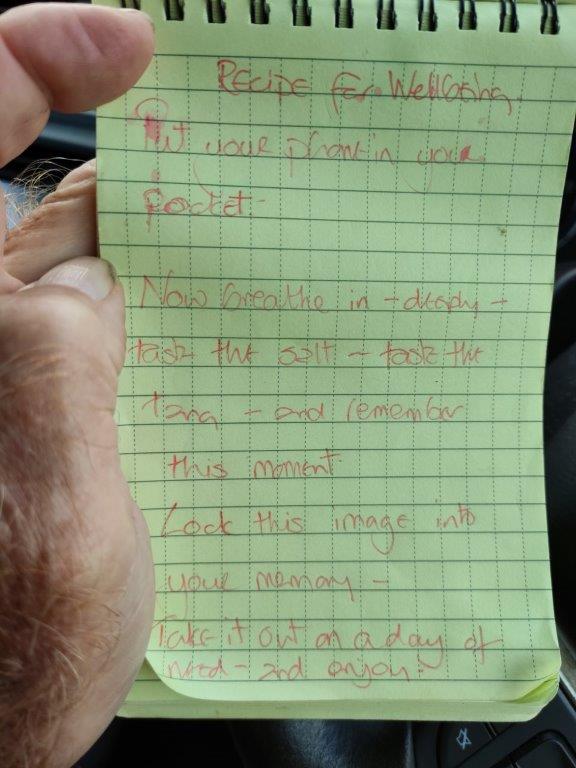 Recipe for Wellbeing
Put your phone in your
pocket.
Now breathe in - deeply -
taste the salt - taste the
tang - and remember
this moment.
Lock this image into
your memory -
Take it out on a day of
need - and enjoy!